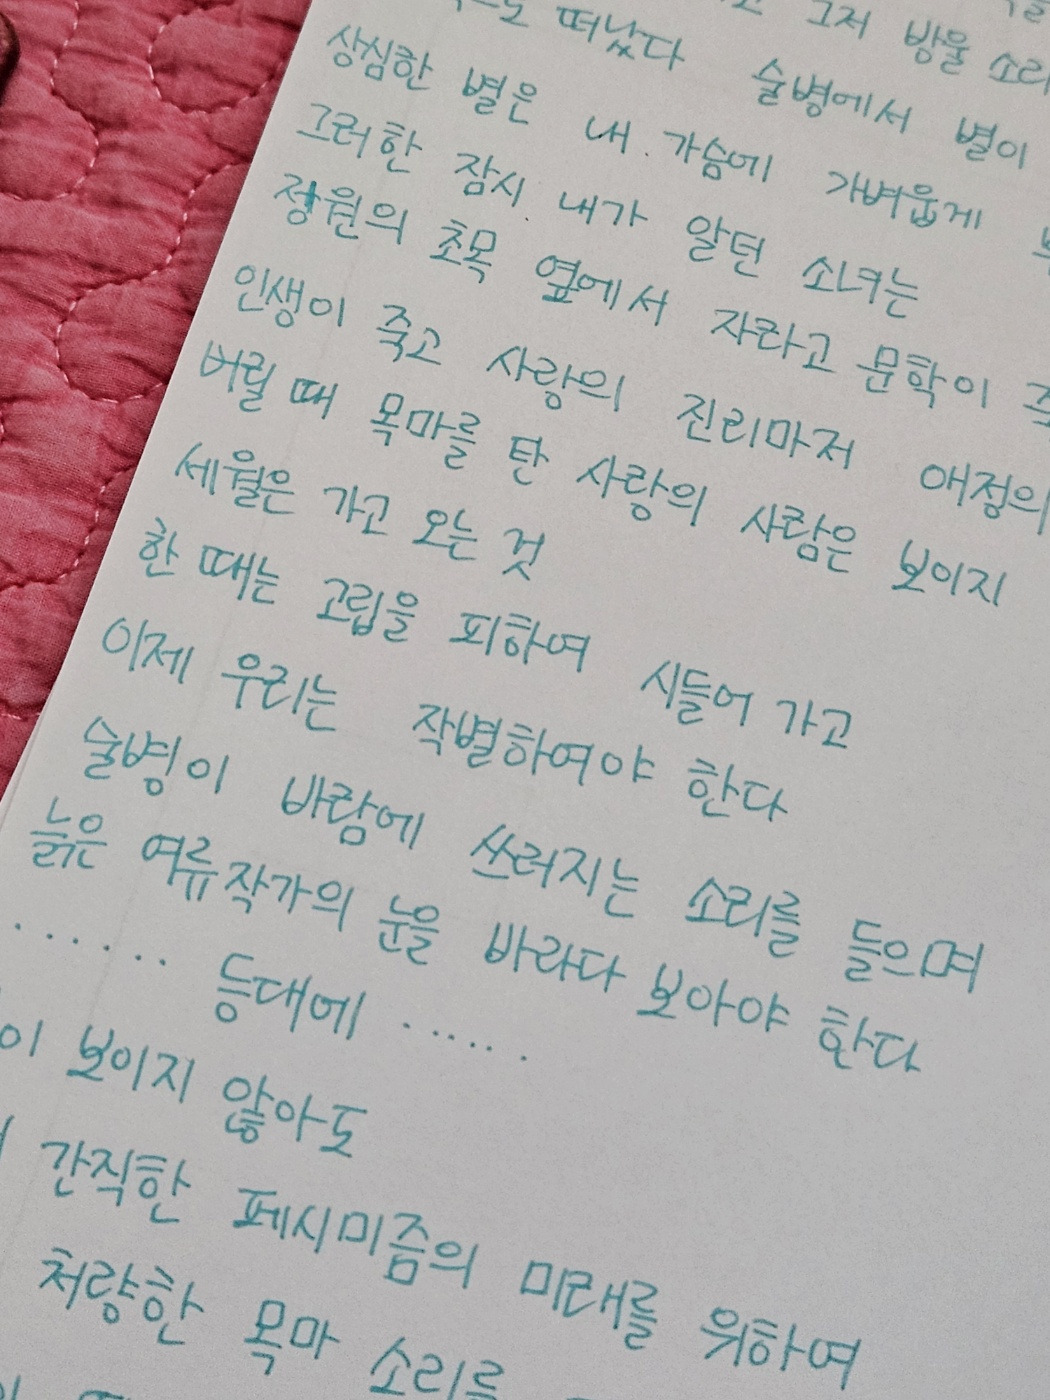 그저 방울 소리
떠났다 술병에서 별이
상심한 별은 내 가슴에 가벼웁게
그러한 잠시 내가 알던 소녀는
정원의 초목 옆에서 자라고 문학이
인생이 죽고 사랑의 진리마저 애정의
버릴 때 목마를 탄 사랑의 사람은 보이지
세월은 가고 오는 것
한 때는 고립을 피하여 시들어 가고
이제 우리는 작별하여야 한다
술병이 바람에 쓰러지는 소리를 들으며
늙은 여류작가의 눈을 바라다 보아야 한다
...... 등대에 ......
이 보이지 않아도
간직한 페시미즘의 미래를 위하여
처량한 목마 소리를